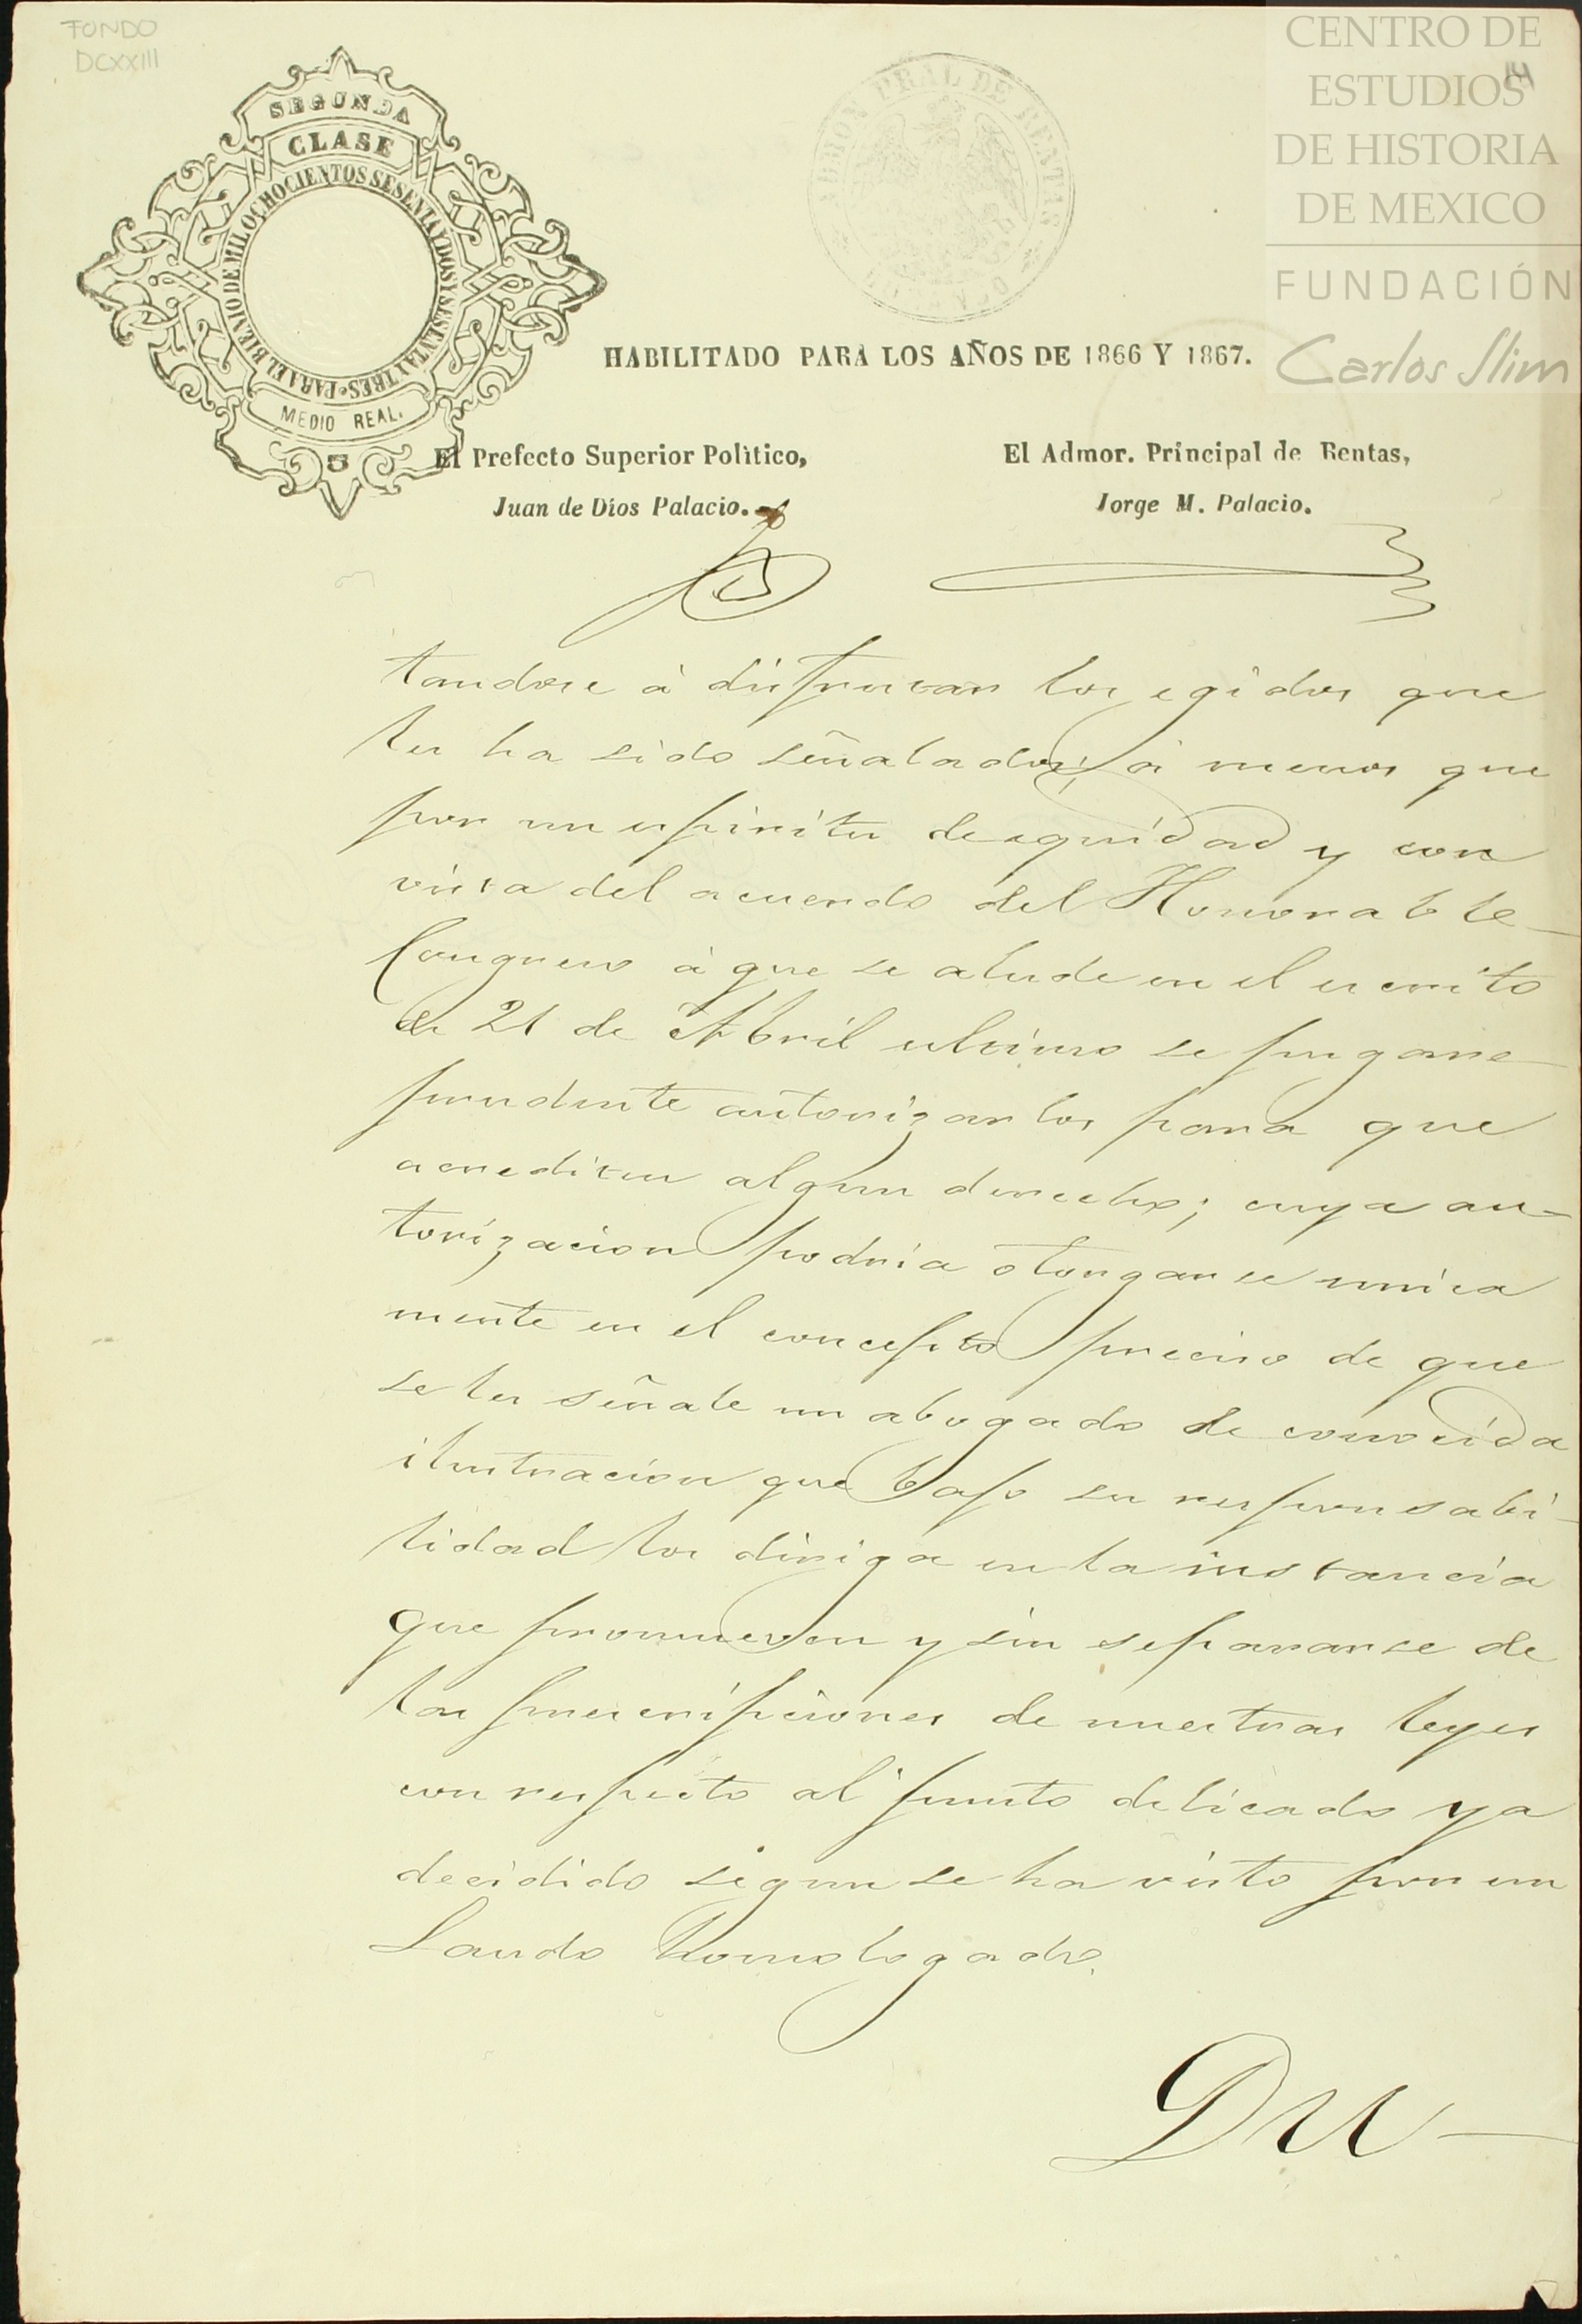 FONDO
DCXXIII
14
CENTRO DE
ESTUDIOS
DE HISTORIA
DE MEXICO
FUNDACIÓN
Carlos Slim
SEGUNDA
CLASE
PARA EL BIENIO DE MIL OCHOCIENTOS SESENTA Y DOS Y SESENTA Y TRES
MEDIO REAL.
5
ADMON PRAL DE RENTAS
HABILITADO PARA LOS AÑOS DE 1866 Y 1867.
El Prefecto Superior Politico,
El Admor. Principal de Rentas,
Juan de Dios Palacio.
Jorge M. Palacio.
tandose á disfrutar los egidos que
les ha sido señalados; á menos que
por un espiritu de equidad y con
vista del acuerdo del Honorable
Congreso á que se alude en el escrito
de 21 de Abril ultimo se jusgare
prudente autorizarlos para que
acrediten algun derecho; cuya au-
torizacion podria otorgarse unica
mente en el concepto preciso de que
se les señale un abogado de conocida
ilustracion que bajo su responsabi-
lidad los dirija en la instancia
que promueven y sin separarse de
las prescripciones de nuestras leyes
con respecto al punto delicado ya
decidido segun se ha visto por un
Laudo homologado.